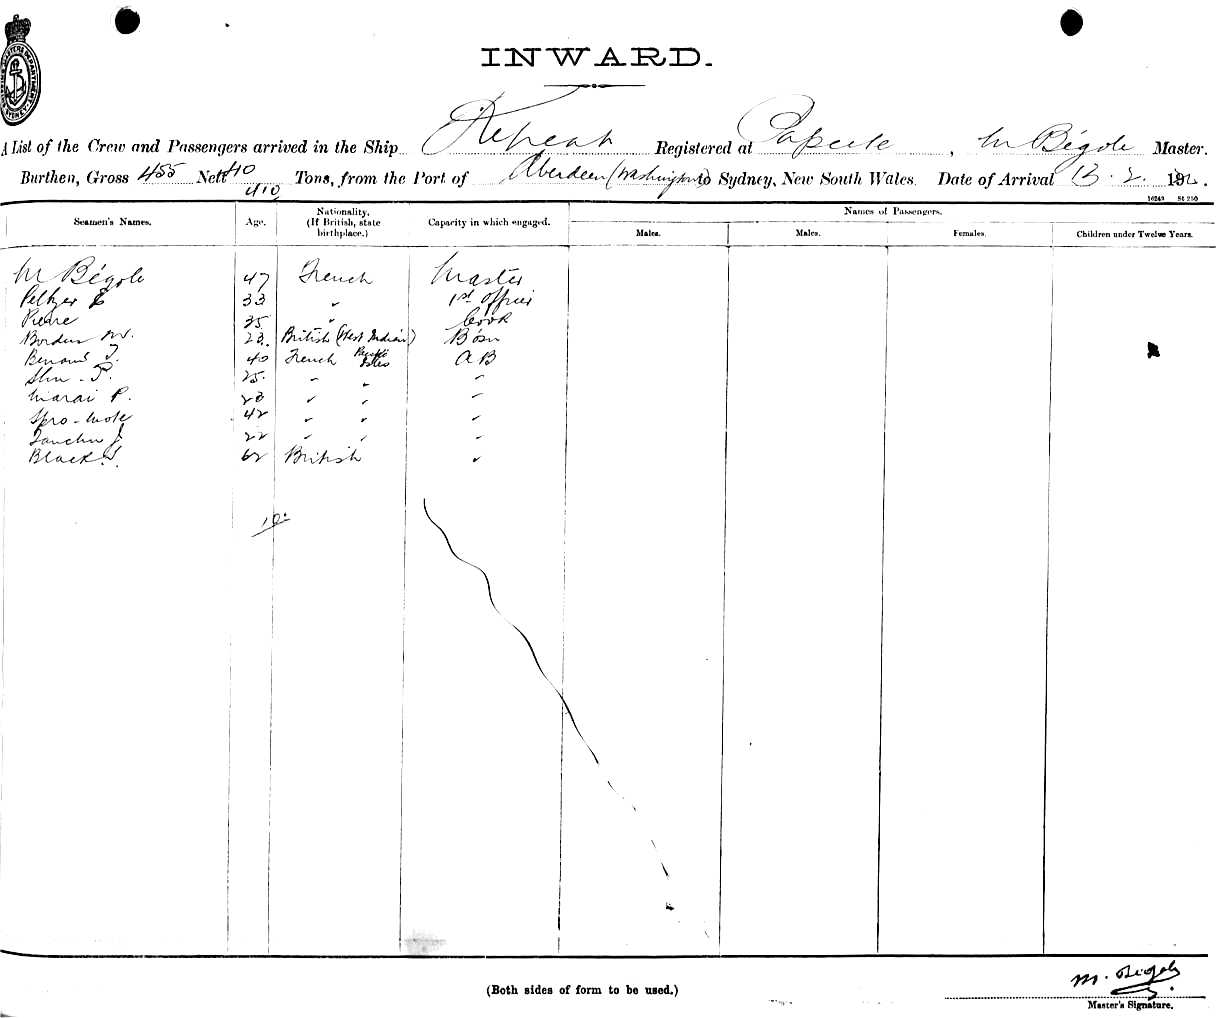 INWARD.
A List of the Crew and Passengers arrived in the Ship Repeat Registered at Papeete, M Bégole Master.
Burthen, Gross 455 Nett 410 Tons, from the Port of Aberdeen (Washington) to Sydney, New South Wales. Date of Arrival 13. 2. 192 .
410
16243 St 250
Names of Passengers.
Seamen's Names. Age. Nationality. (If British, state birthplace.) Capacity in which engaged. Males. Males. Females. Children under Twelve Years.
M Bégole 47 French Master
Peltzer E 33 " 1st Officer
Pierre 35 " Cook
Borden W. 23. British (West Indian) Bosn
Benami T. 40 French Pacific Isles AB
25. " " "
Marai P. 23 " " "
42 " " "
22 " " "
Black 62 British "
10.
M. Bégole
(Both sides of form to be used.)
Master's Signature.